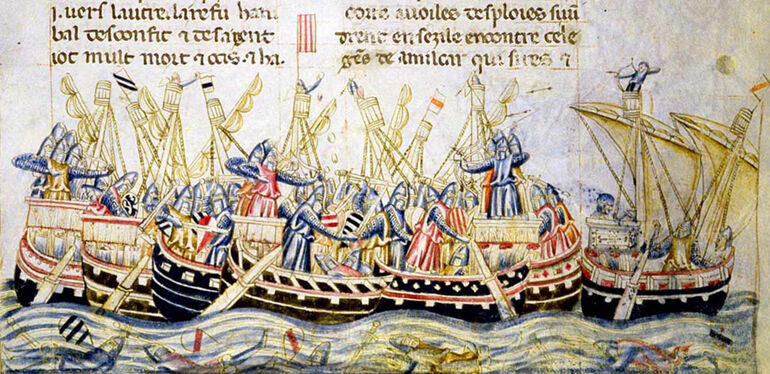 uers lautre. la refu han
bal desconfit ⁊ de sa gent
iot mult mort ⁊ ocis. ⁊ ha.
corre a uoiles desploies
drent en sezile encontre cele
ges de amilcar qui sires ⁊